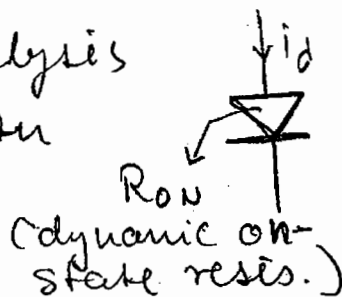 lysis
i_d
R_ON
(dynamic on-
state resis.)